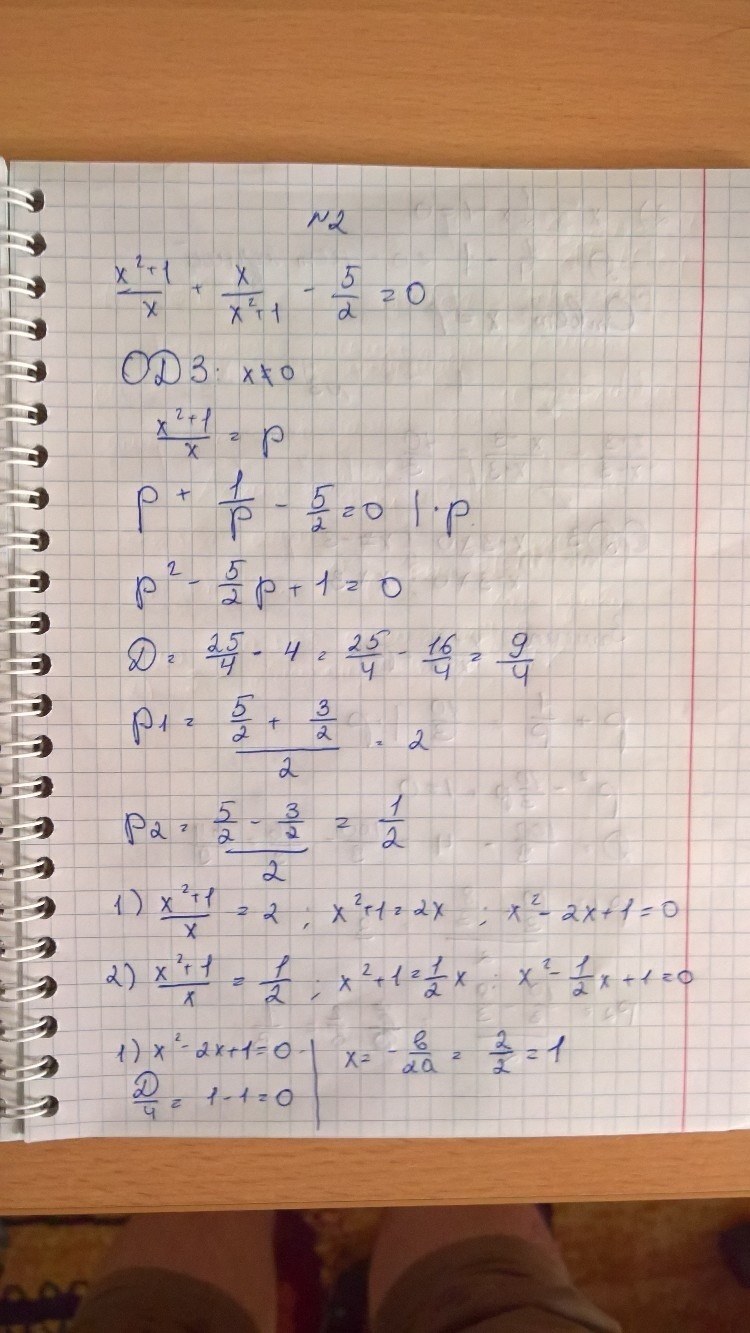 №2
x²+1/x + x/x²+1 - 5/2 = 0
ОДЗ: x≠0
x²+1/x = p
p + 1/p - 5/2 = 0 | · p
p² - 5/2 p + 1 = 0
D = 25/4 - 4 = 25/4 - 16/4 = 9/4
p1 = 5/2 + 3/2 / 2 = 2
p2 = 5/2 - 3/2 / 2 = 1/2
1) x²+1/x = 2 ; x²+1 = 2x ; x² - 2x + 1 = 0
2) x²+1/x = 1/2 ; x²+1 = 1/2 x ; x² - 1/2 x + 1 = 0
1) x² - 2x + 1 = 0 | x = - в/2a = 2/2 = 1
D/4 = 1 - 1 = 0